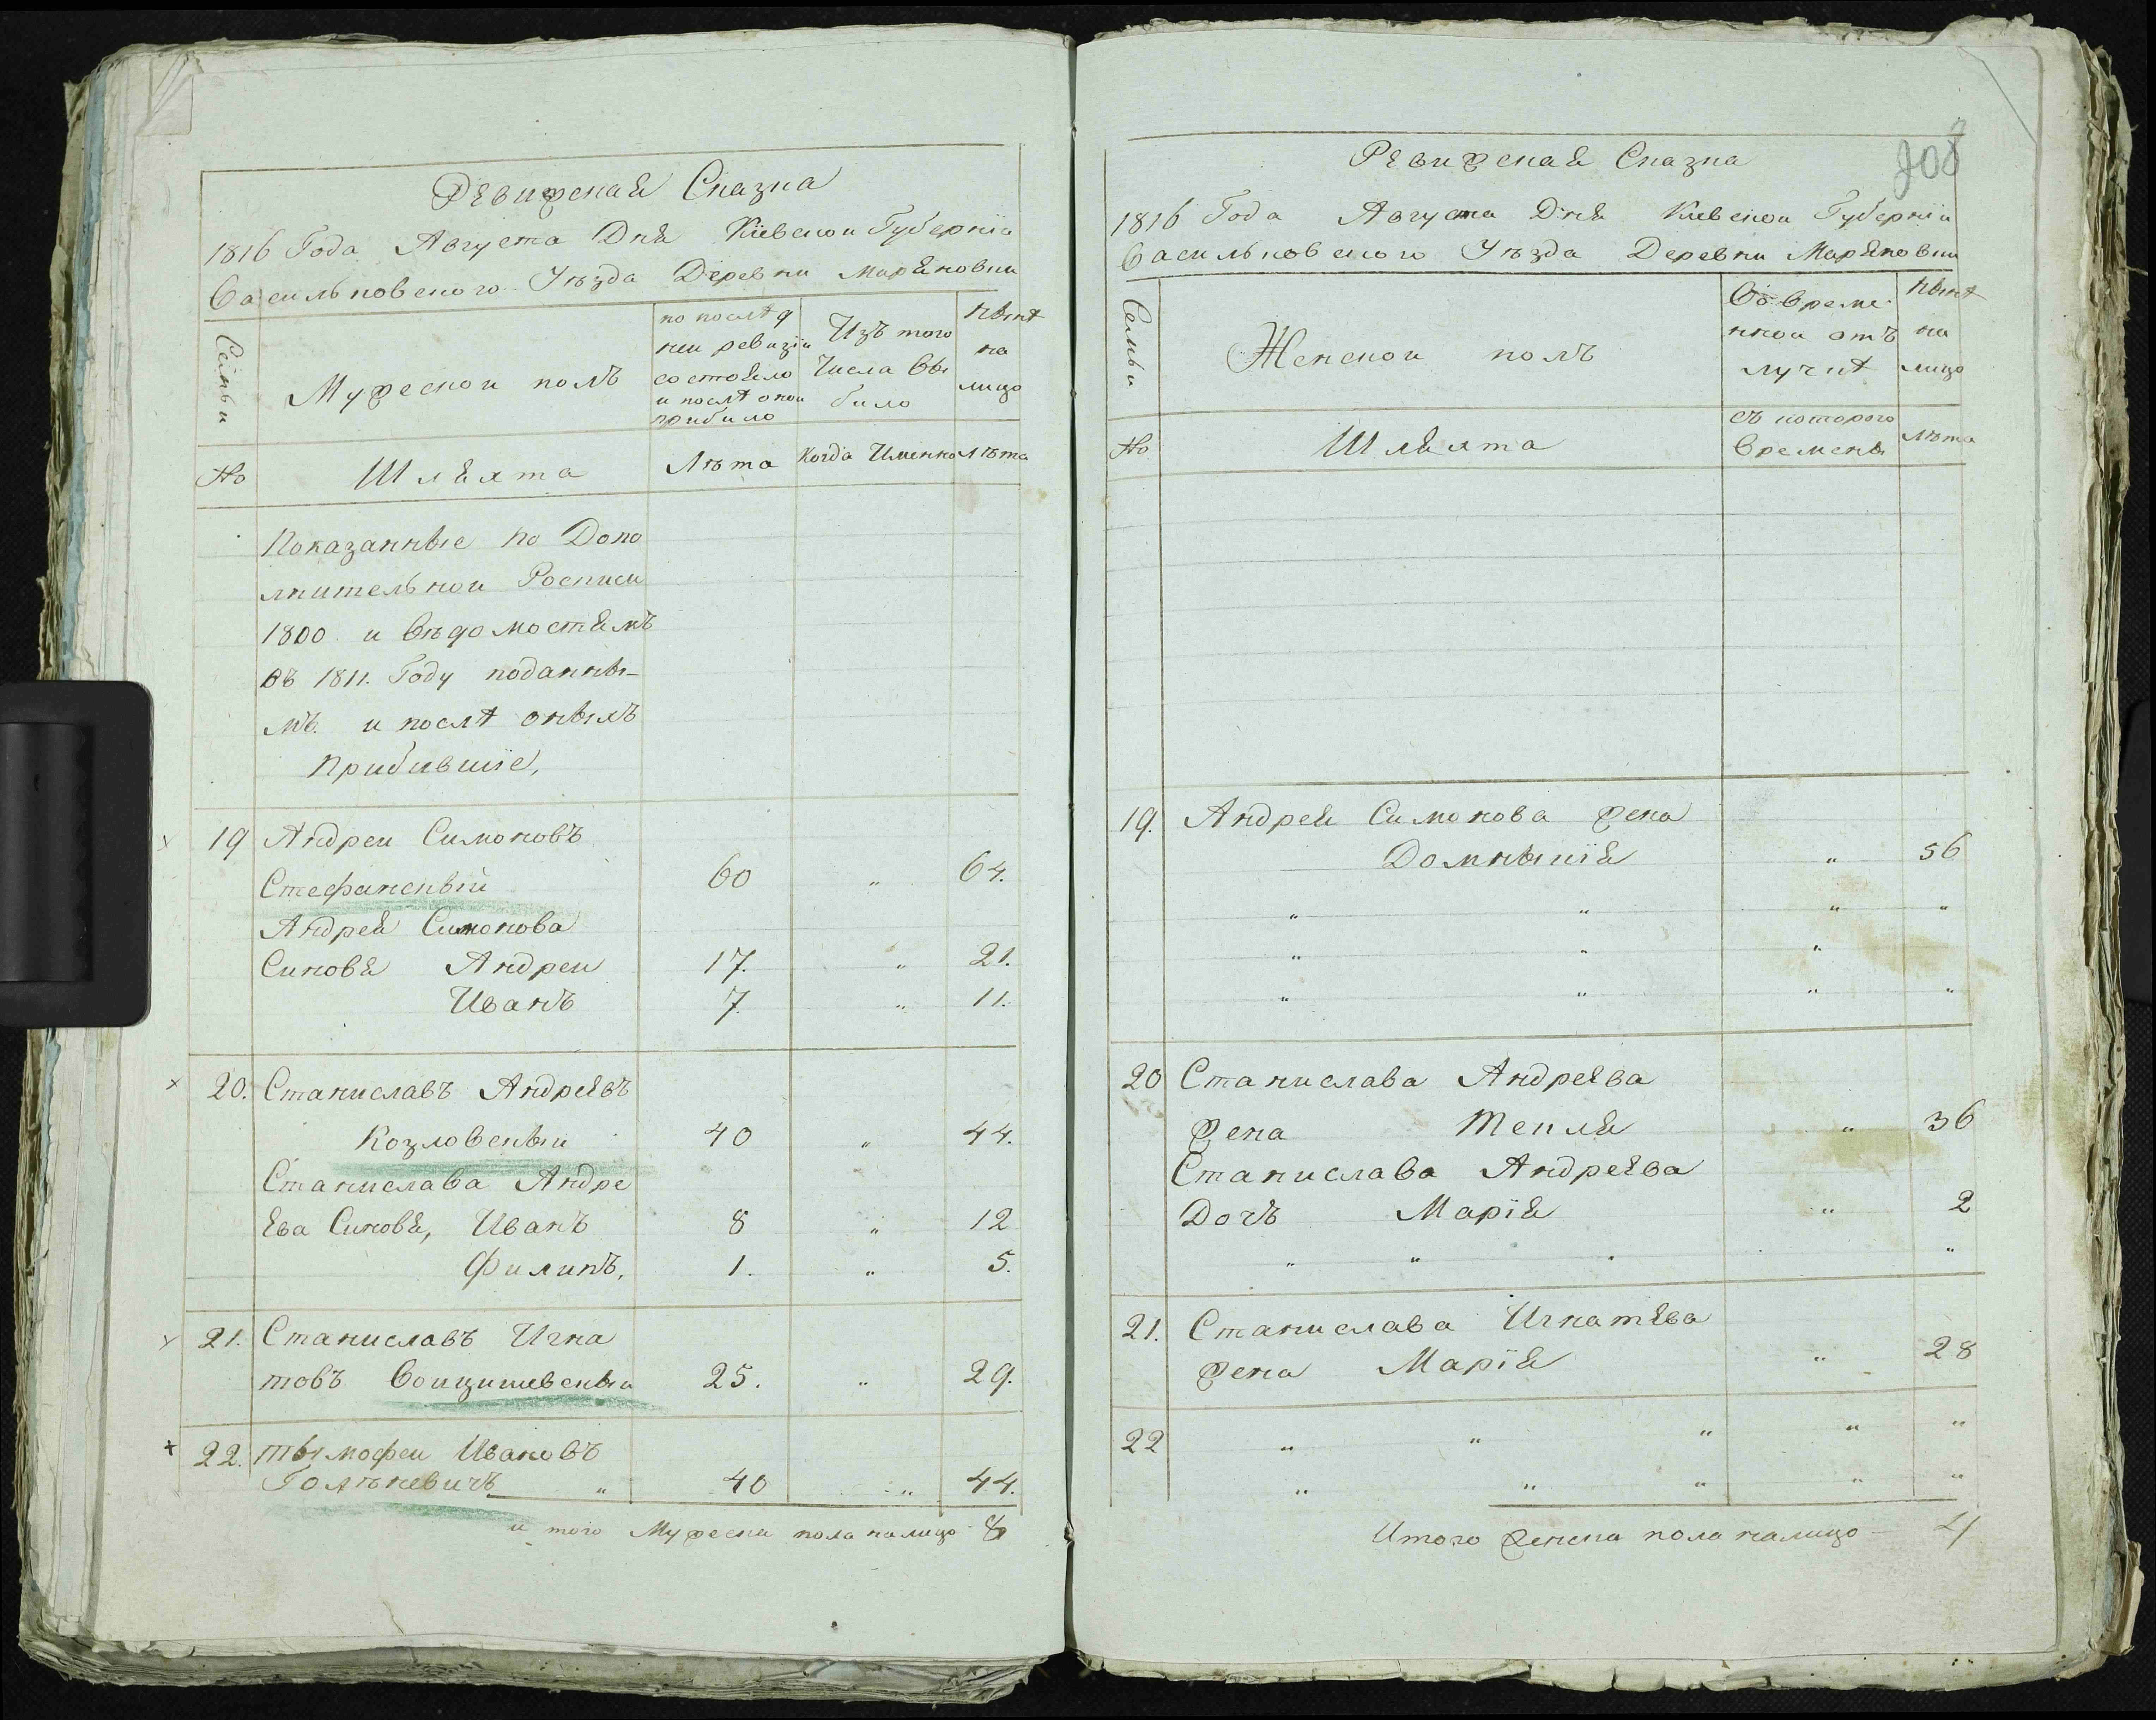 Ревизская Сказка
1816 Года Августа Дня Кіевскои Губерніи
Васильковского Уѣзда Деревни Маряновки
Семьи
Мужескои полъ
по послѣд
неи ревизіи
состояло
и послѣ онои
прибило
Изъ того
Числа вы
било
Нынѣ
на
лицо
№
Шляхта
Лѣта
Когда Имянно
Лѣта
Показанные по Допо
лнительнои Росписи
1800 и вѣдомостямъ
въ 1811. Году поданны-
мъ. и послѣ оныхъ
прибившіе,
19 Андреи Симоновъ
Стефанскыи 60 " 64.
Андрея Симонова
Синовя Андреи 17. " 21.
Иванъ 7. " 11.
20. Станиславъ Андреевъ
Козловскыи 40 " 44.
Станислава Андре
ева Синовя, Иванъ 8 " 12
Филипъ, 1. " 5.
21. Станиславъ Игна
товъ 25. " 29.
22. Тымофеи Ивановъ
Голѣкевичъ " 40 " 44.
и того Мужеска пола налицо 8
208
Ревизская Сказка
1816 Года Августа Дня Кіевскои Губерніи
Василковского Уѣзда Деревни Маряновки
Семьи
Женскои полъ
Во време
ннои отъ
лучкѣ
Нынѣ
на
лицо
№
Шляхта
съ которого
времены
Лѣта
19. Андрея Симонова жена
Домныкія " 56
" " " "
" " "
" " " "
20 Станислава Андреева
жена Текля " 36
Станислава Андреева
Дочъ Марія " 2
" " " "
21. Станислава Игнатева
жена Марія " 28
22 " " " " "
" " " " "
Итого женска пола налицо - 4